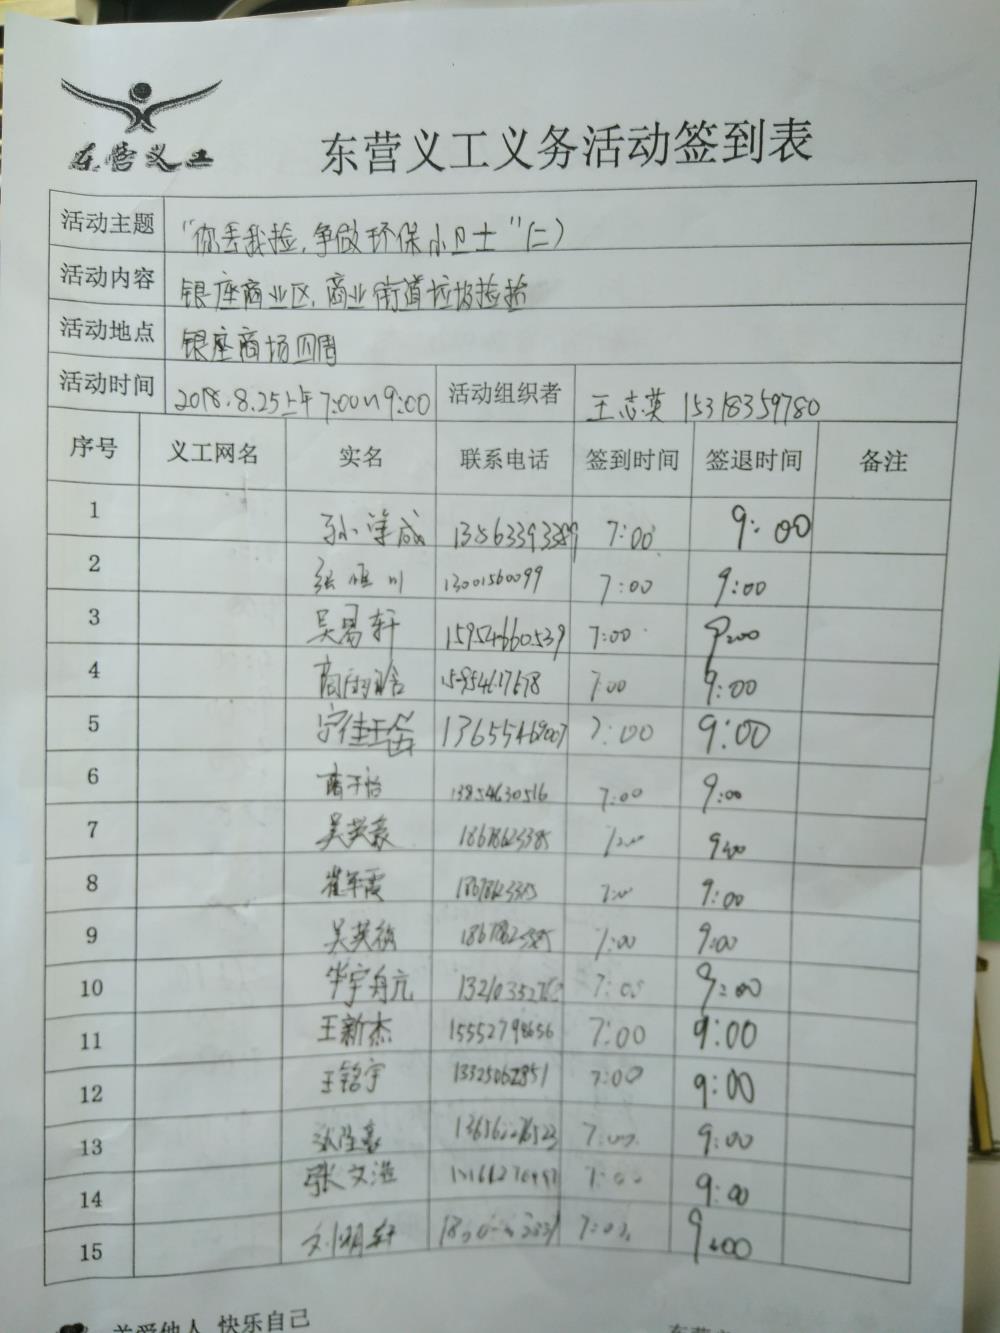 东营义工
东营义工义务活动签到表
活动主题 "你丢我捡,争做环保小卫士"(二)
活动内容 银座商业区,商业街道垃圾捡拾
活动地点 银座商场四周
活动时间 2018.8.25上午7:00~9:00 活动组织者 王志英 15318359780
序号 义工网名 实名 联系电话 签到时间 签退时间 备注
1 13563393389 7:00 9:00
2 13001560099 7:00 9:00
3 吴易轩 15954660539 7:00 9:00
4 7:00 9:00
5 13655469007 7:00 9:00
6 商子怡 13854630516 7:00 9:00
7 吴英豪 18678623385 7:00 9:00
8 崔军霞 7:00 9:00
9 7:00 9:00
10 7:00 9:00
11 王新杰 15552798656 7:00 9:00
12 王铭宇 13325062851 7:00 9:00
13 7:00 9:00
14 张文浩 7:00 9:00
15 7:00 9:00
关爱他人 快乐自己